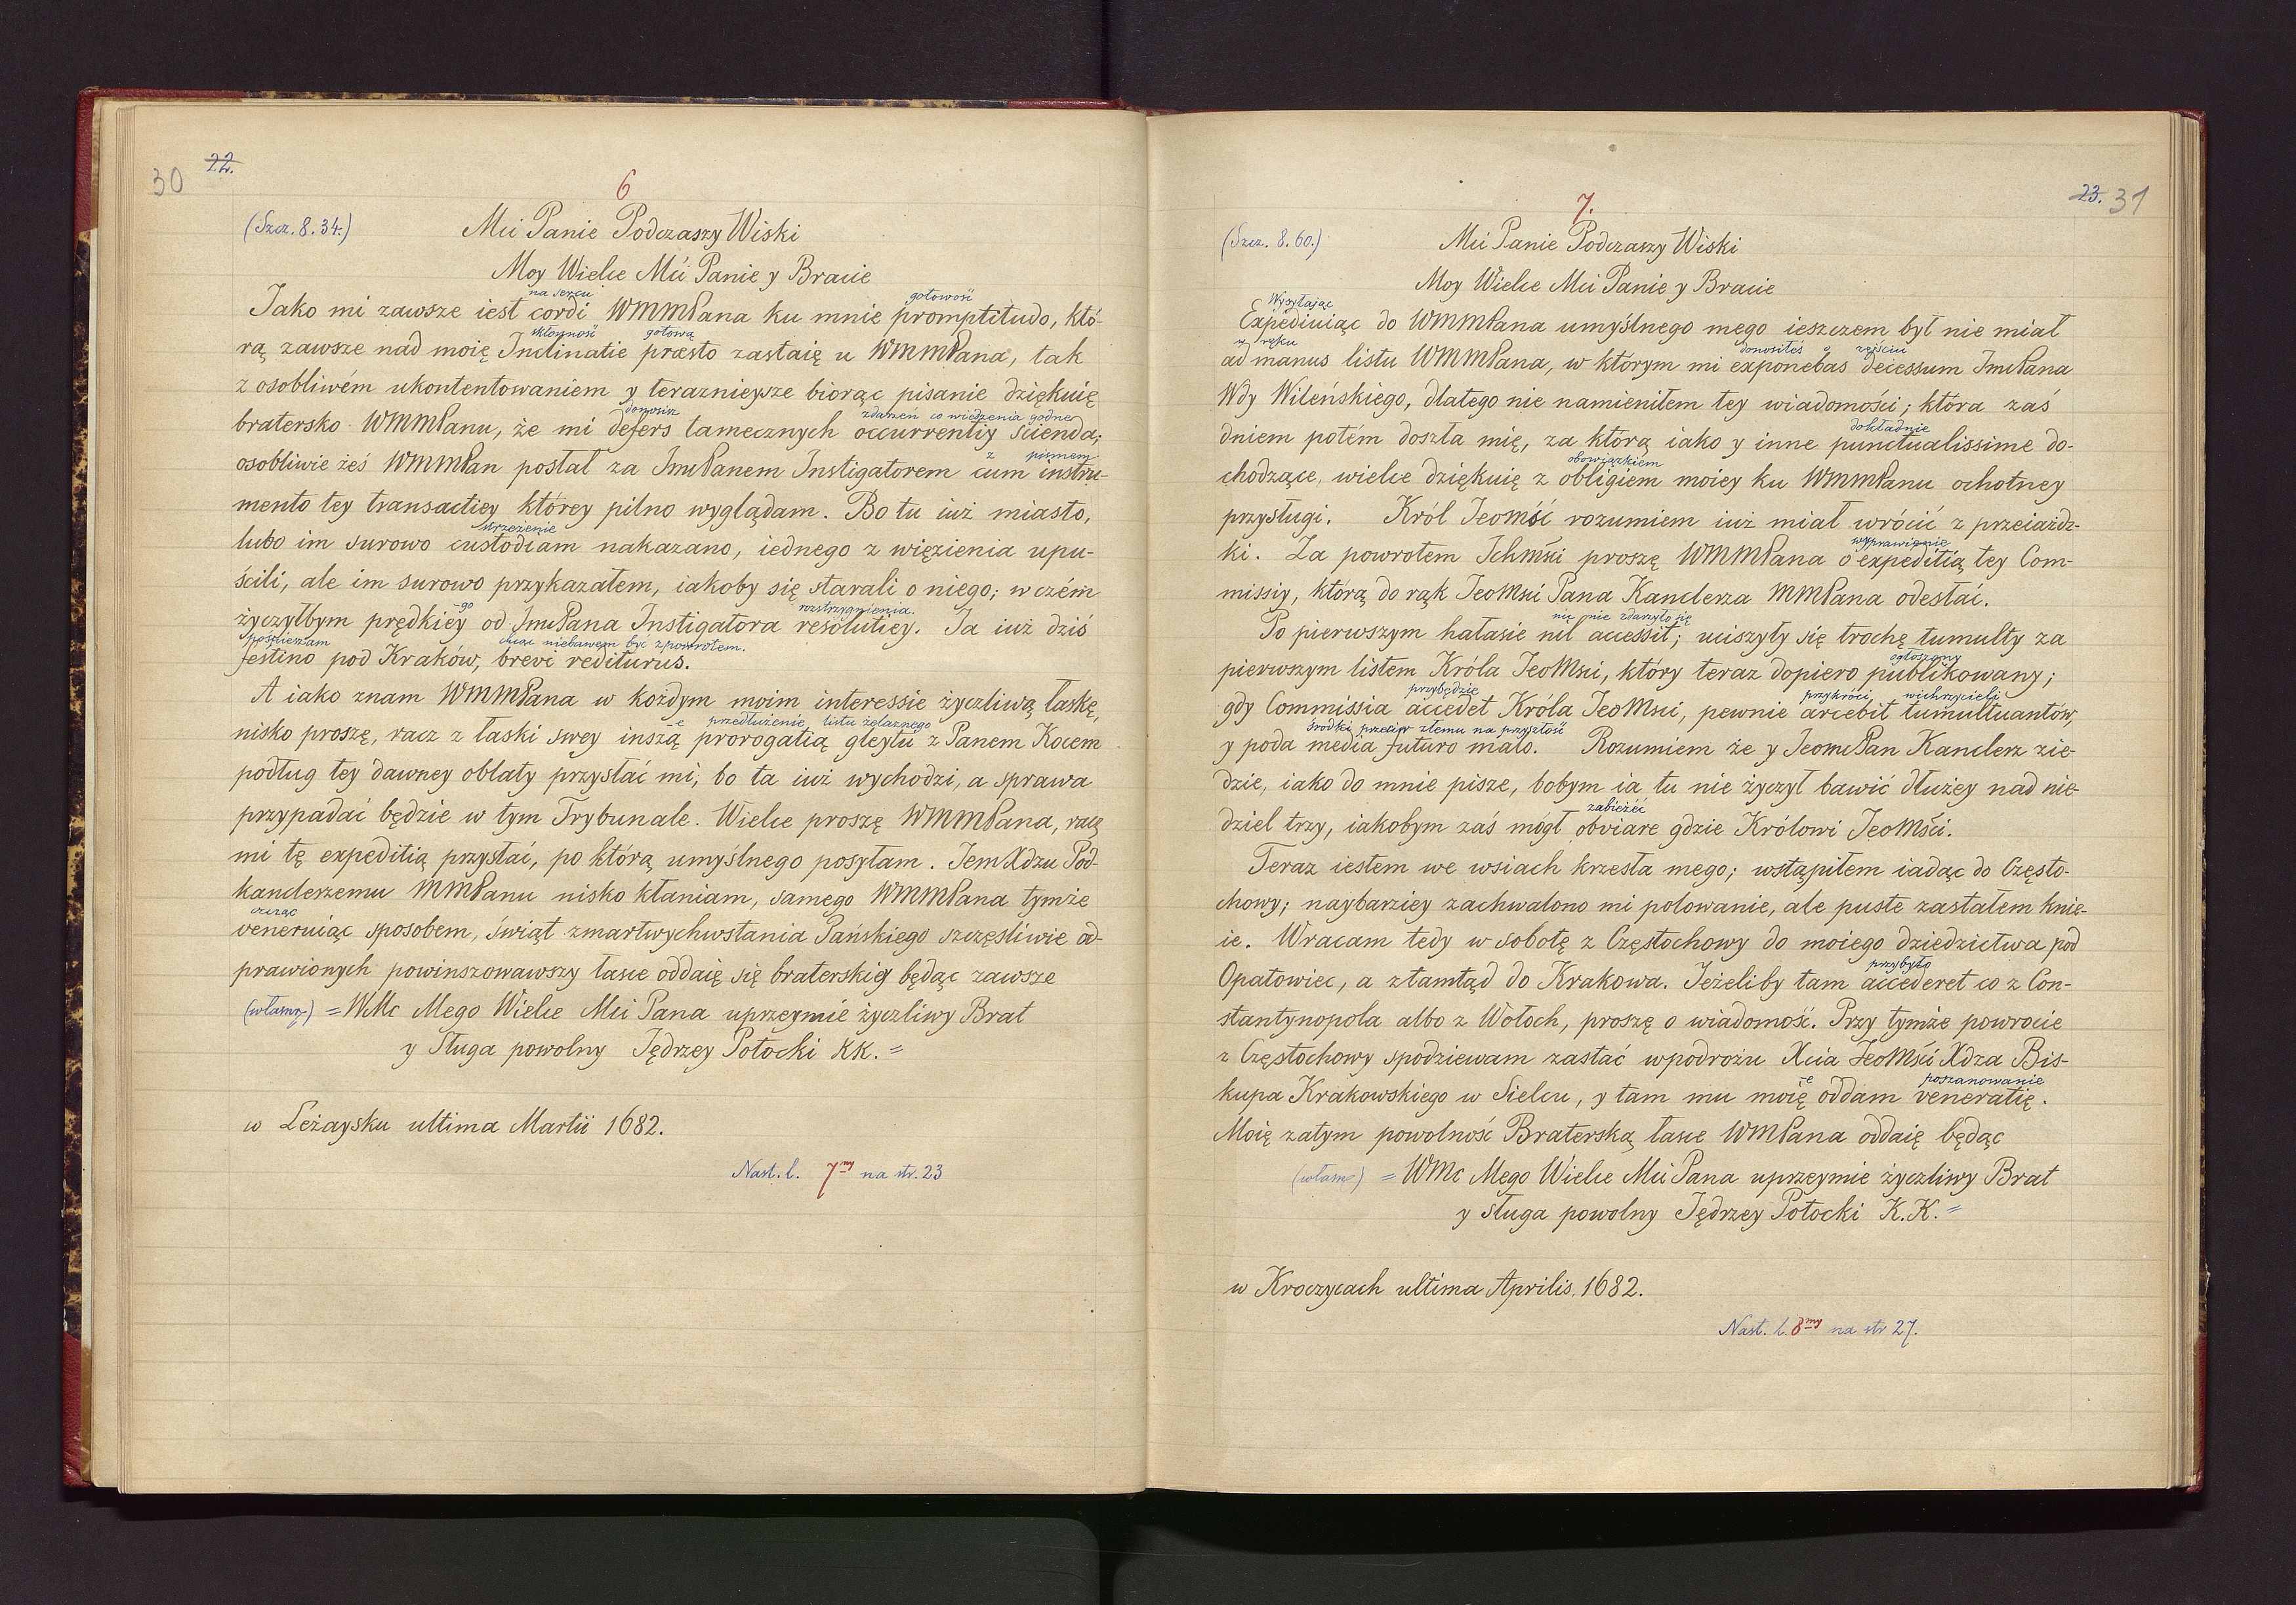 30 22.
6
(Szcz. 8. 34.) Mci Panie Podczaszy Wiski
Moy Wielce Mci Panie y Bracie
na sercu gotowość
Iako mi zawsze iest cordi WMMPana ku mnie promptitudo, któ-
skłonność gotową
rą zawsze nad moię Inclinatie præsto zastaię u WMMPana, tak
z osobliwém ukontentowaniem y teraznieysze biorąc pisanie dziękuię
donosisz zdarzeń co wiedzenia godne
bratersko WMMPanu, że mi defers tamecznych occurrentiy scienda;
z pismem
osobliwie żeś WMMPan posłał za ImcPanem Instigatorem cum instru-
mento tey transactiey którey pilno wyglądam. Bo tu iuż miasto,
strzeżenie
lubo im surowo custodiam nakazano, iednego z więzienia upu-
ścili, ale im surowo przykazałem, iakoby się starali o niego; w czém
-go rozstrzygnienia.
życzyłbym prędkiey od ImcPana Instigatora resolutiey. Ia iuż dziś
pośpieszam chcąc niebawem być z powrotem.
festino pod Kraków, brevi rediturus.
A iako znam WMMPana w każdym moim interessie życzliwą łaskę,
-e przedłużenie listu żelaznego
nisko proszę, racz z łaski swey inszą prorogatią gleytu z Panem Kocem
podług tey dawney oblaty przysłać mi, bo ta iuż wychodzi, a sprawa
przypadać będzie w tym Trybunale. Wielce proszę WMMPana, racz
mi tę expeditią przysłać, po którą umyślnego posyłam. Iem Xdzu Pod-
kanclerzemu MMPanu nisko kłaniam, samego WMMPana tymże
czcząc
veneruiąc sposobem, świąt zmartwychwstania Pańskiego szczęśliwie od-
prawionych powinszowawszy łasce oddaię się braterskiey będąc zawsze
(własny) = WMc Mego Wielce Mci Pana uprzeymie życzliwy Brat
y Sługa powolny Jędrzey Potocki KK. =
w Leżaysku ultima Martii 1682.
Nast. l. 7my na str. 23
23. 31
7.
(Szcz. 8. 60.) Mci Panie Podczaszy Wiski
Moy Wielce Mci Panie y Bracie
Wysyłając
Expediuiąc do WMMPana umyślnego mego ieszczem był nie miał
w ręku donosiłeś o zejściu
ad manus listu WMMPana, w którym mi exponebas decessum ImcPana
Wdy Wileńskiego, dlatego nie namieniłem tey wiadomości; która zaś
dokładnie
dniem potém doszła mię, za którą iako y inne punctualissime do-
obowiązkiem
chodzące, wielce dziękuię z obligiem moiey ku WMMPanu ochotney
przysługi. Król Ieomść rozumiem iuż miał wrócić z przeiażdż-
wyprawienie
ki. Za powrotem Ichmści proszę WMMPana o expeditią tey Com-
missiy, którą do rąk IeoMsci Pana Kanclerza MMPana odesłać.
nic nie zdarzyło się
Po pierwszym hałasie nil accessit; uciszyły się trochę tumulty za
ogłoszony
pierwszym listem Króla IeoMsci, który teraz dopiero publikowany;
przybędzie przykróci wichrzycieli
gdy Commissia accedet Króla IeoMsci, pewnie arcebit tumultuantów,
środki przeciw złemu na przyszłość
y poda media futuro malo. Rozumiem że y IeomcPan Kanclerz zie-
dzie, iako do mnie pisze, bobym ia tu nie życzył bawić dłużey nad nie-
zabieżeć
dziel trzy, iakobym zaś mógł obviare gdzie Królowi IeoMści.
Teraz iestem we wsiach krzesła mego; wstąpiłem iadąc do Często-
chowy; naybarziey zachwalono mi polowanie, ale puste zastałem knie-
ie. Wracam tedy w sobotę z Częstochowy do moiego dziedzictwa pod
przybyło
Opatowiec, a ztamtąd do Krakowa. Ieżeliby tam accederet co z Con-
stantynopola albo z Wołoch, proszę o wiadomość. Przy tymże powrocie
z Częstochowy spodziewam zastać wpodrożu Xcia IeoMści Xdza Bis-
-e poszanowanie
kupa Krakowskiego w Sielcu, y tam mu moię oddam veneratię.
Moię zatym powolność Braterską łasce WMPana oddaię będąc
(własn) = WMc Mego Wielce Mci Pana uprzeymie życzliwy Brat
y sługa powolny Jędrzey Potocki K.K. =
w Kroczycach ultima Aprilis, 1682.
Nast. l. 8my na str 27.